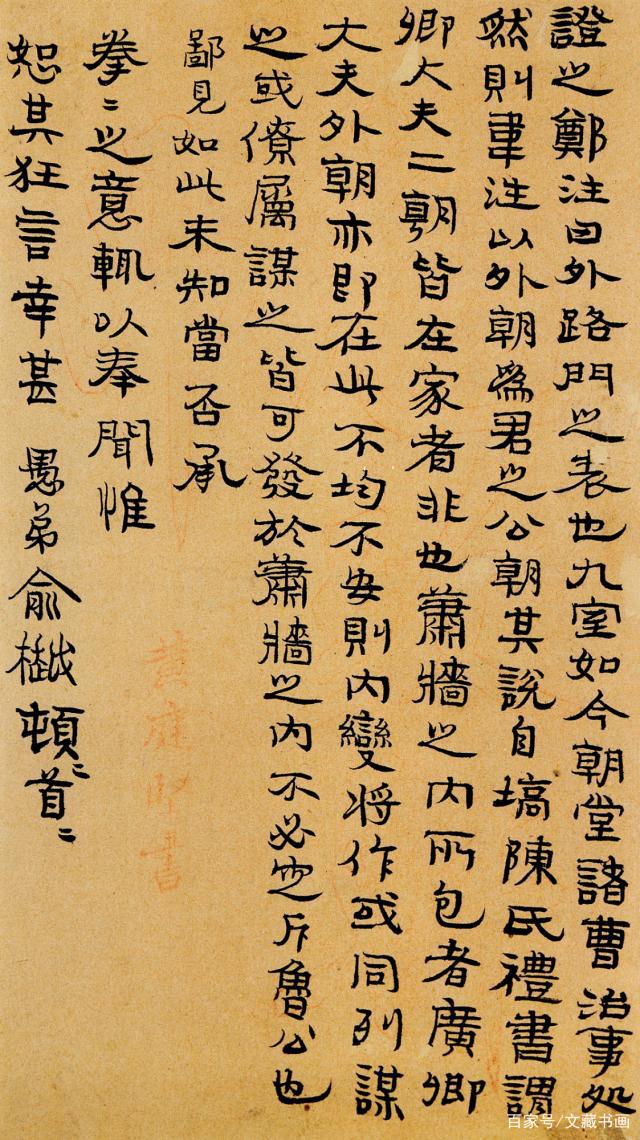 證之鄭注曰外路門之表也九室如今朝堂諸曹治事処
然則韋注以外朝為君之公朝其説自塙陳氏禮書謂
卿大夫二朝皆在家者非也蕭牆之内所包者廣卿
大夫外朝亦即在此不均不安則内變将作或同列謀
之或僚屬謀之皆可發於蕭牆之内不必定斥魯公也
鄙見如此未知當否承
拳〻之意輒以奉聞惟
恕其狂言幸甚 愚弟俞樾頓〻首〻
書
百家号/文藏书画